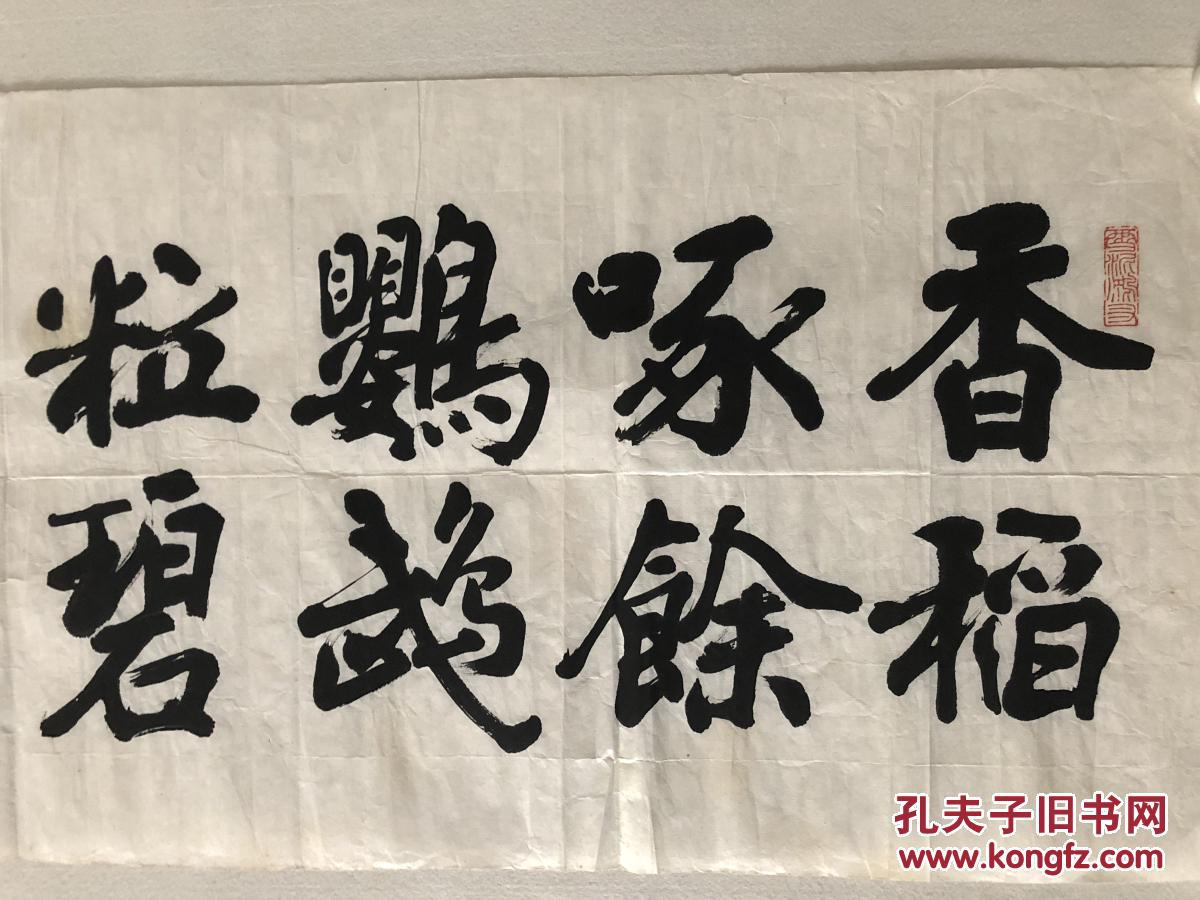 香稻
啄餘
鸚鵡
粒碧
孔夫子旧书网
www.kongfz.com